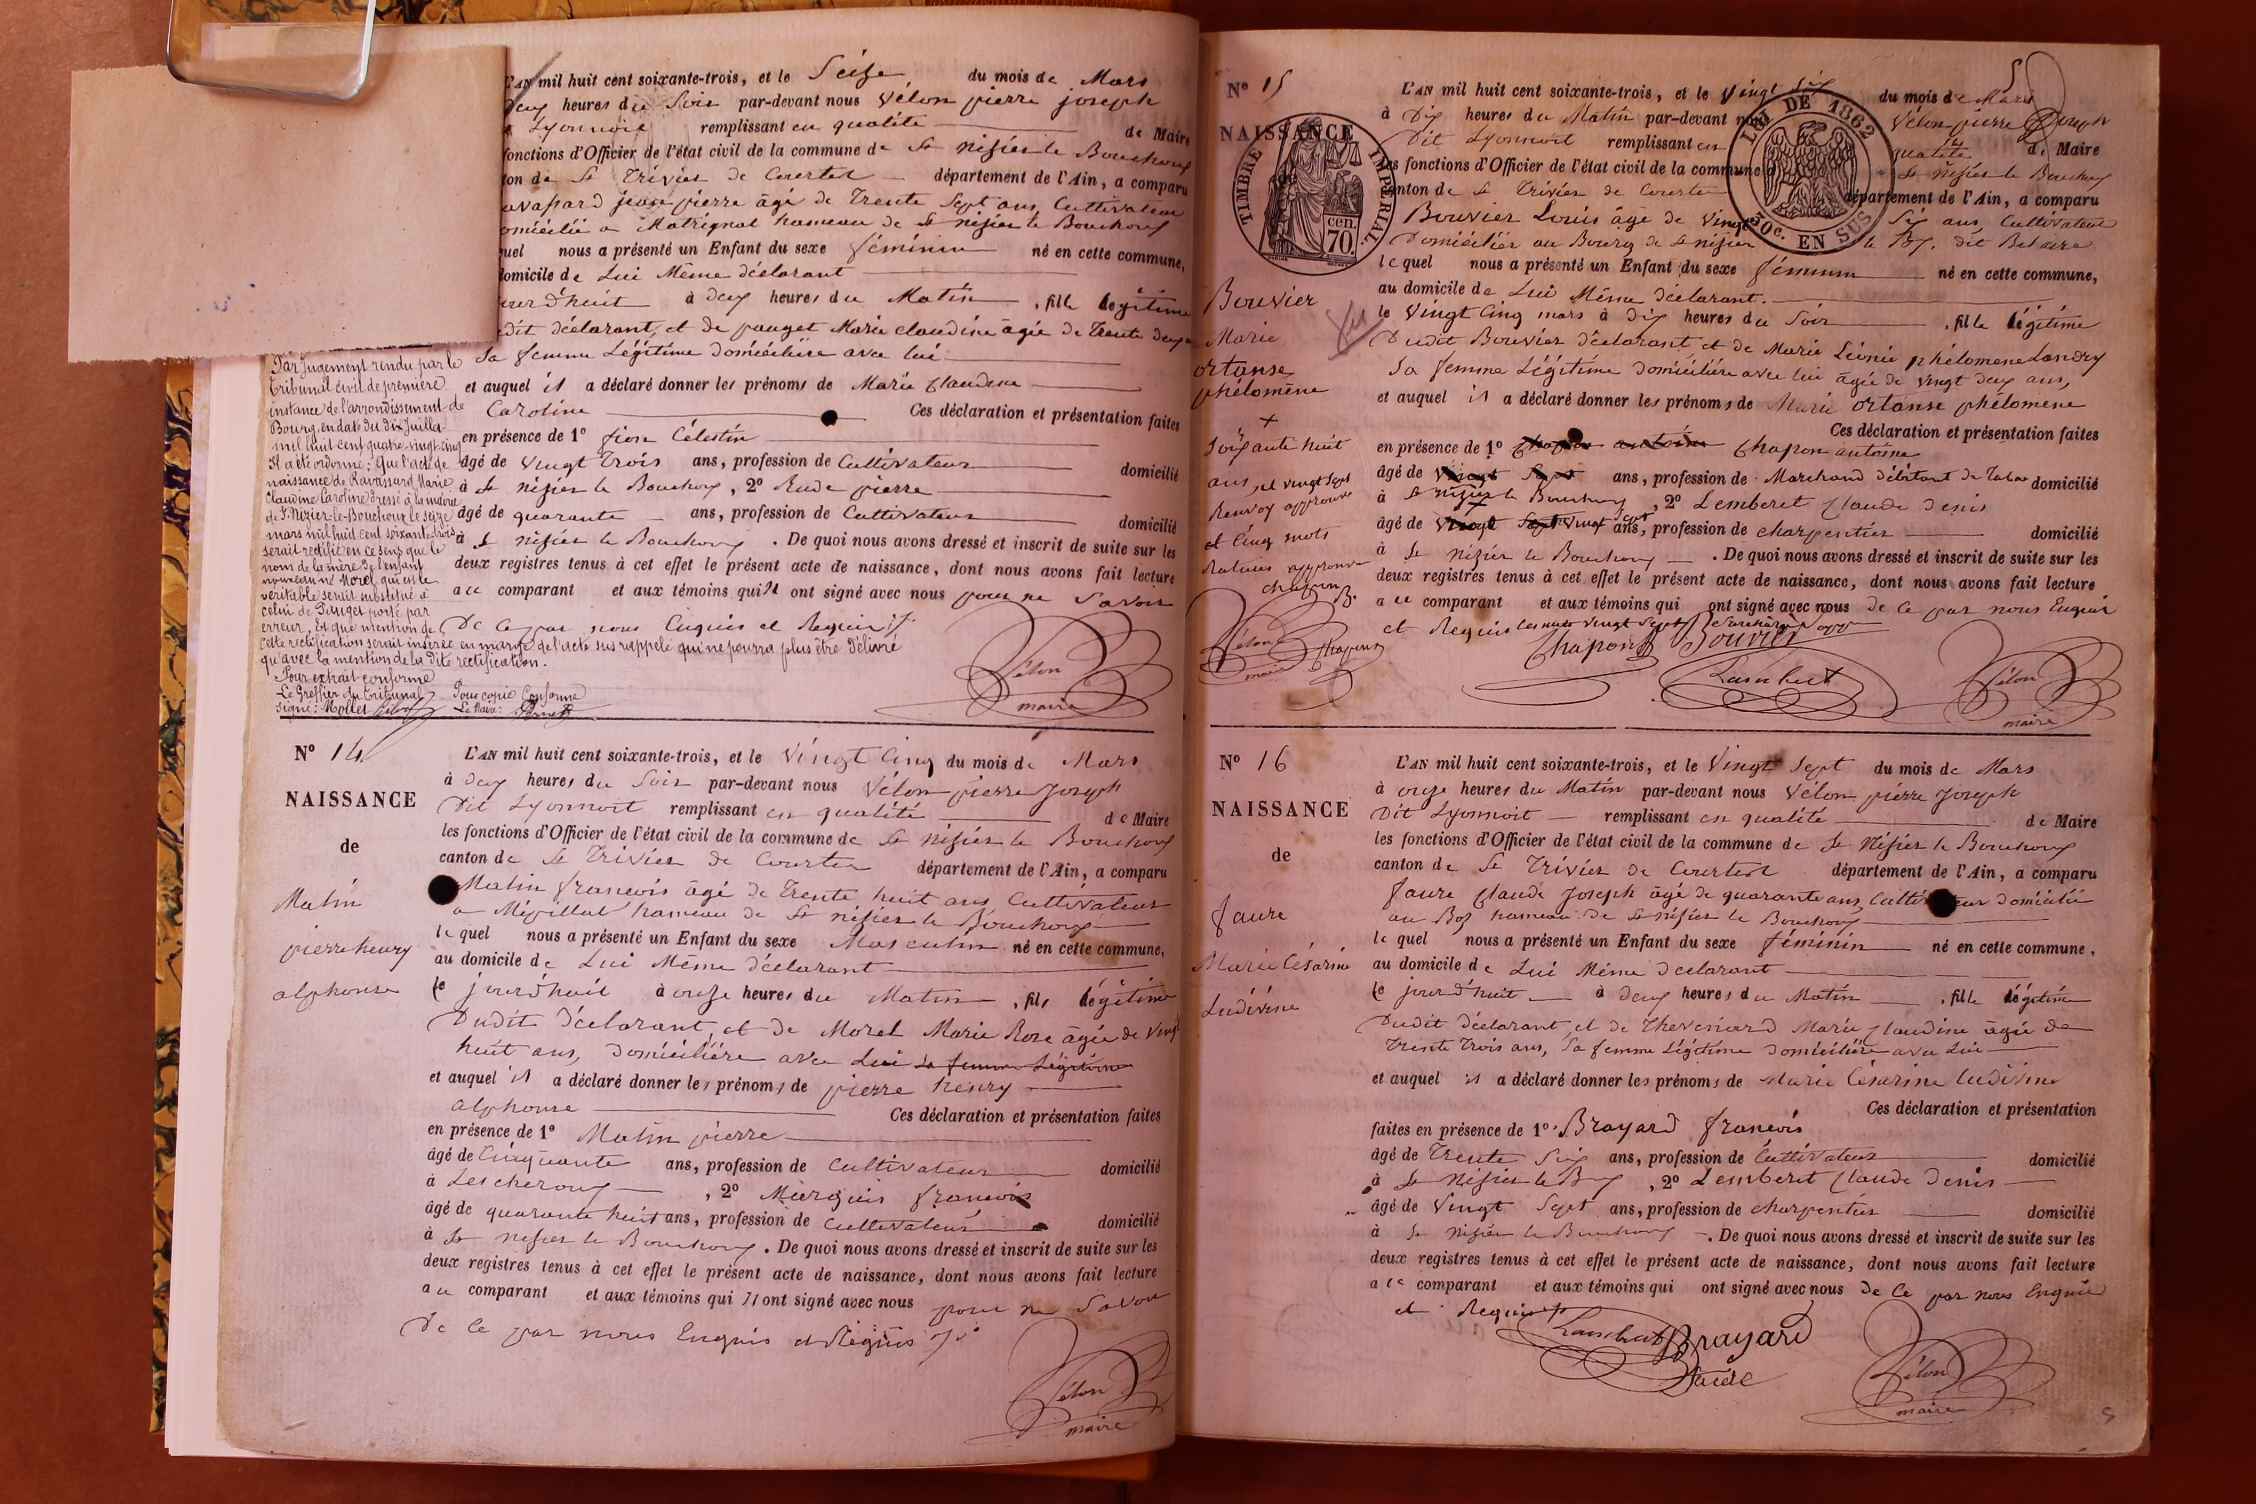 L'AN mil huit cent soixante-trois, et le Seize du mois de Mars
Deux heures du Soir par-devant nous Vélon pierre joseph
Lyonnois remplissant en qualité de Maire
fonctions d'Officier de l'état civil de la commune de St nizier le Bouchoux
ton de St Trivier de Courtes département de l'Ain, a comparu
avassard jean pierre âgé de Trente Sept ans, Cultivateur
omicilié a Matrignat hameau de St nizier le Bouchoux
quel nous a présenté un Enfant du sexe féminin né en cette commune,
domicile de Lui Même déclarant
jourd'huit à deux heures du Matin, fille légitime
dit déclarant, et de pauget Marie claudine âgée de Trente deux
Sa femme Légitime domiciliée avec lui
et auquel il a déclaré donner les prénoms de Marie Claudine
Caroline Ces déclaration et présentation faites
en présence de 1º fion Célestin
âgé de vingt Trois ans, profession de Cultivateur domicilié
à St nizier le Bouchoux, 2º Rude pierre
âgé de quarante ans, profession de Cultivateur domicilié
à St nizier le Bouchoux. De quoi nous avons dressé et inscrit de suite sur les
deux registres tenus à cet effet le présent acte de naissance, dont nous avons fait lecture
au comparant et aux témoins qui n ont signé avec nous pour ne Savoir
De ce par nous Enquis et Requis
Par Jugement rendu par le
tribunal civil de première
instance de l'arrondissement de
Bourg, en date du dix Juillet
mil huit cent quatre-vingt-cinq
Il a été ordonné: Que l'acte de
naissance de Ravassard Marie
Claudine Caroline dressé à la mairie
de St Nizier-le-Bouchoux le seize
mars mil huit cent soixante trois
serait rectifié en ce sens que le
nom de la mère de l'enfant
Morel qui est le
véritable serait substitué à
celui de Pauget porté par
erreur, Et que mention de
cette rectification serait insérée en marge de l'acte sus rappelé qui ne pourra plus être délivré
qu'avec la mention de la dite rectification.
Pour extrait conforme
Le Greffier du tribunal Pour copie Conforme
Signé: Mollet Le Maire:
Vélon
maire
Nº 14
NAISSANCE
de
Matin
pierre henry
alphonse
L'AN mil huit cent soixante-trois, et le Vingt Cinq du mois de Mars
à deux heures du Soir par-devant nous Vélon pierre Joseph
Dit Lyonnoit remplissant en qualité de Maire
les fonctions d'Officier de l'état civil de la commune de St nizier le Bouchoux
canton de St Trivier de Courtes département de l'Ain, a comparu
Matin francois âgé de Trente huit ans, Cultivateur
a Mépillat hameau de St nizier le Bouchoux
lequel nous a présenté un Enfant du sexe Masculin né en cette commune,
au domicile de Lui Même déclarant
le jourd'huit à onze heures du Matin, fils légitime
Dudit déclarant, et de Morel Marie Rose âgée de Vingt
huit ans, domiciliére avec Lui Sa femme Légitime
et auquel il a déclaré donner les prénoms de pierre henry
alphonse Ces déclaration et présentation faites
en présence de 1º Matin pierre
âgé de Cinquante ans, profession de Cultivateur domicilié
à Lescheroux, 2º Murguis francois
âgé de quarante huit ans, profession de Cultivateur domicilié
à St nizier le Bouchoux. De quoi nous avons dressé et inscrit de suite sur les
deux registres tenus à cet effet le présent acte de naissance, dont nous avons fait lecture
au comparant et aux témoins qui n ont signé avec nous pour ne Savoir
De ce par nous Enquis et Requis
Vélon
maire
5
Nº 15
NAISSANCE
TIMBRE IMPERIAL
70 cen.
LOI DE 1862
50c. EN SUS
Bouvier
Marie
ortanse
phélomène
Soixante huit
ans, et vingt sept
Renvoy approuvé
et Cinq mots
Ratures approuvé
chapon
Vélon
maire
Chapon
L'AN mil huit cent soixante-trois, et le Vingt Six du mois de Mars
à Dix heures du Matin par-devant nous Vélon pierre Joseph
Dit Lyonnoit remplissant en qualité de Maire
les fonctions d'Officier de l'état civil de la commune de St nizier le Bouchoux
canton de St Trivier de Courtes département de l'Ain, a comparu
Bouvier Louis âgé de Vingt Six ans Cultivateur
Domicilier au Bourg de St nizier le Bx. dit
lequel nous a présenté un Enfant du sexe féminin né en cette commune,
au domicile de Lui Même déclarant.
le Vingt Cinq mars à dix heures du Soir, fille légitime
Dudit Bouvier déclarant et de Marie Léonie phélomene Landry
Sa femme Légitime domiciliére avec lui âgée de vingt deux ans,
et auquel il a déclaré donner les prénoms de Marie Ortanse phélomene
Ces déclaration et présentation faites
en présence de 1º Chapon antoine Chapon antoine
âgé de Vingt Sept ans, profession de Marchand débitant de Tabac domicilié
à St nizier le Bouchoux, 2º Lemberet Claude denis
âgé de Vingt Sept Vingt Sept ans, profession de charpentier domicilié
à St nizier le Bouchoux. De quoi nous avons dressé et inscrit de suite sur les
deux registres tenus à cet effet le présent acte de naissance, dont nous avons fait lecture
au comparant et aux témoins qui ont signé avec nous de ce par nous Enquis
et Requis Les mots vingt sept
Chapon Bouvier
Lambert
Vélon
maire
Nº 16
NAISSANCE
de
faure
Marie Césarine
Ludivine
L'AN mil huit cent soixante-trois, et le Vingt Sept du mois de Mars
à onze heures du Matin par-devant nous Vélon pierre Joseph
Dit Lyonnoit remplissant en qualité de Maire
les fonctions d'Officier de l'état civil de la commune de St Nizier le Bouchoux
canton de St Trivier de Courtes département de l'Ain, a comparu
faure Claude Joseph âgé de quarante ans, Cultivateur domicilié
au Boz hameau de St nizier le Bouchoux
lequel nous a présenté un Enfant du sexe féminin né en cette commune,
au domicile de Lui Même déclarant
le jourd'huit à deux heures du Matin, fille légitime
Dudit déclarant, et de Thevenard Marie Claudine âgée de
Trente Trois ans, Sa femme Légitime domiciliére avec Lui
et auquel il a déclaré donner les prénoms de Marie Césarine Ludivine
Ces déclaration et présentation
faites en présence de 1º Brayard francois
âgé de Trente Six ans, profession de Cultivateur domicilié
à St Nizier le Bx, 2º Lemberet Claude denis
âgé de Vingt Sept ans, profession de charpentier domicilié
à St nizier le Bouchoux. De quoi nous avons dressé et inscrit de suite sur les
deux registres tenus à cet effet le présent acte de naissance, dont nous avons fait lecture
au comparant et aux témoins qui ont signé avec nous de ce par nous Enquis
et Requis
Lambert Brayard
faure
Vélon
maire